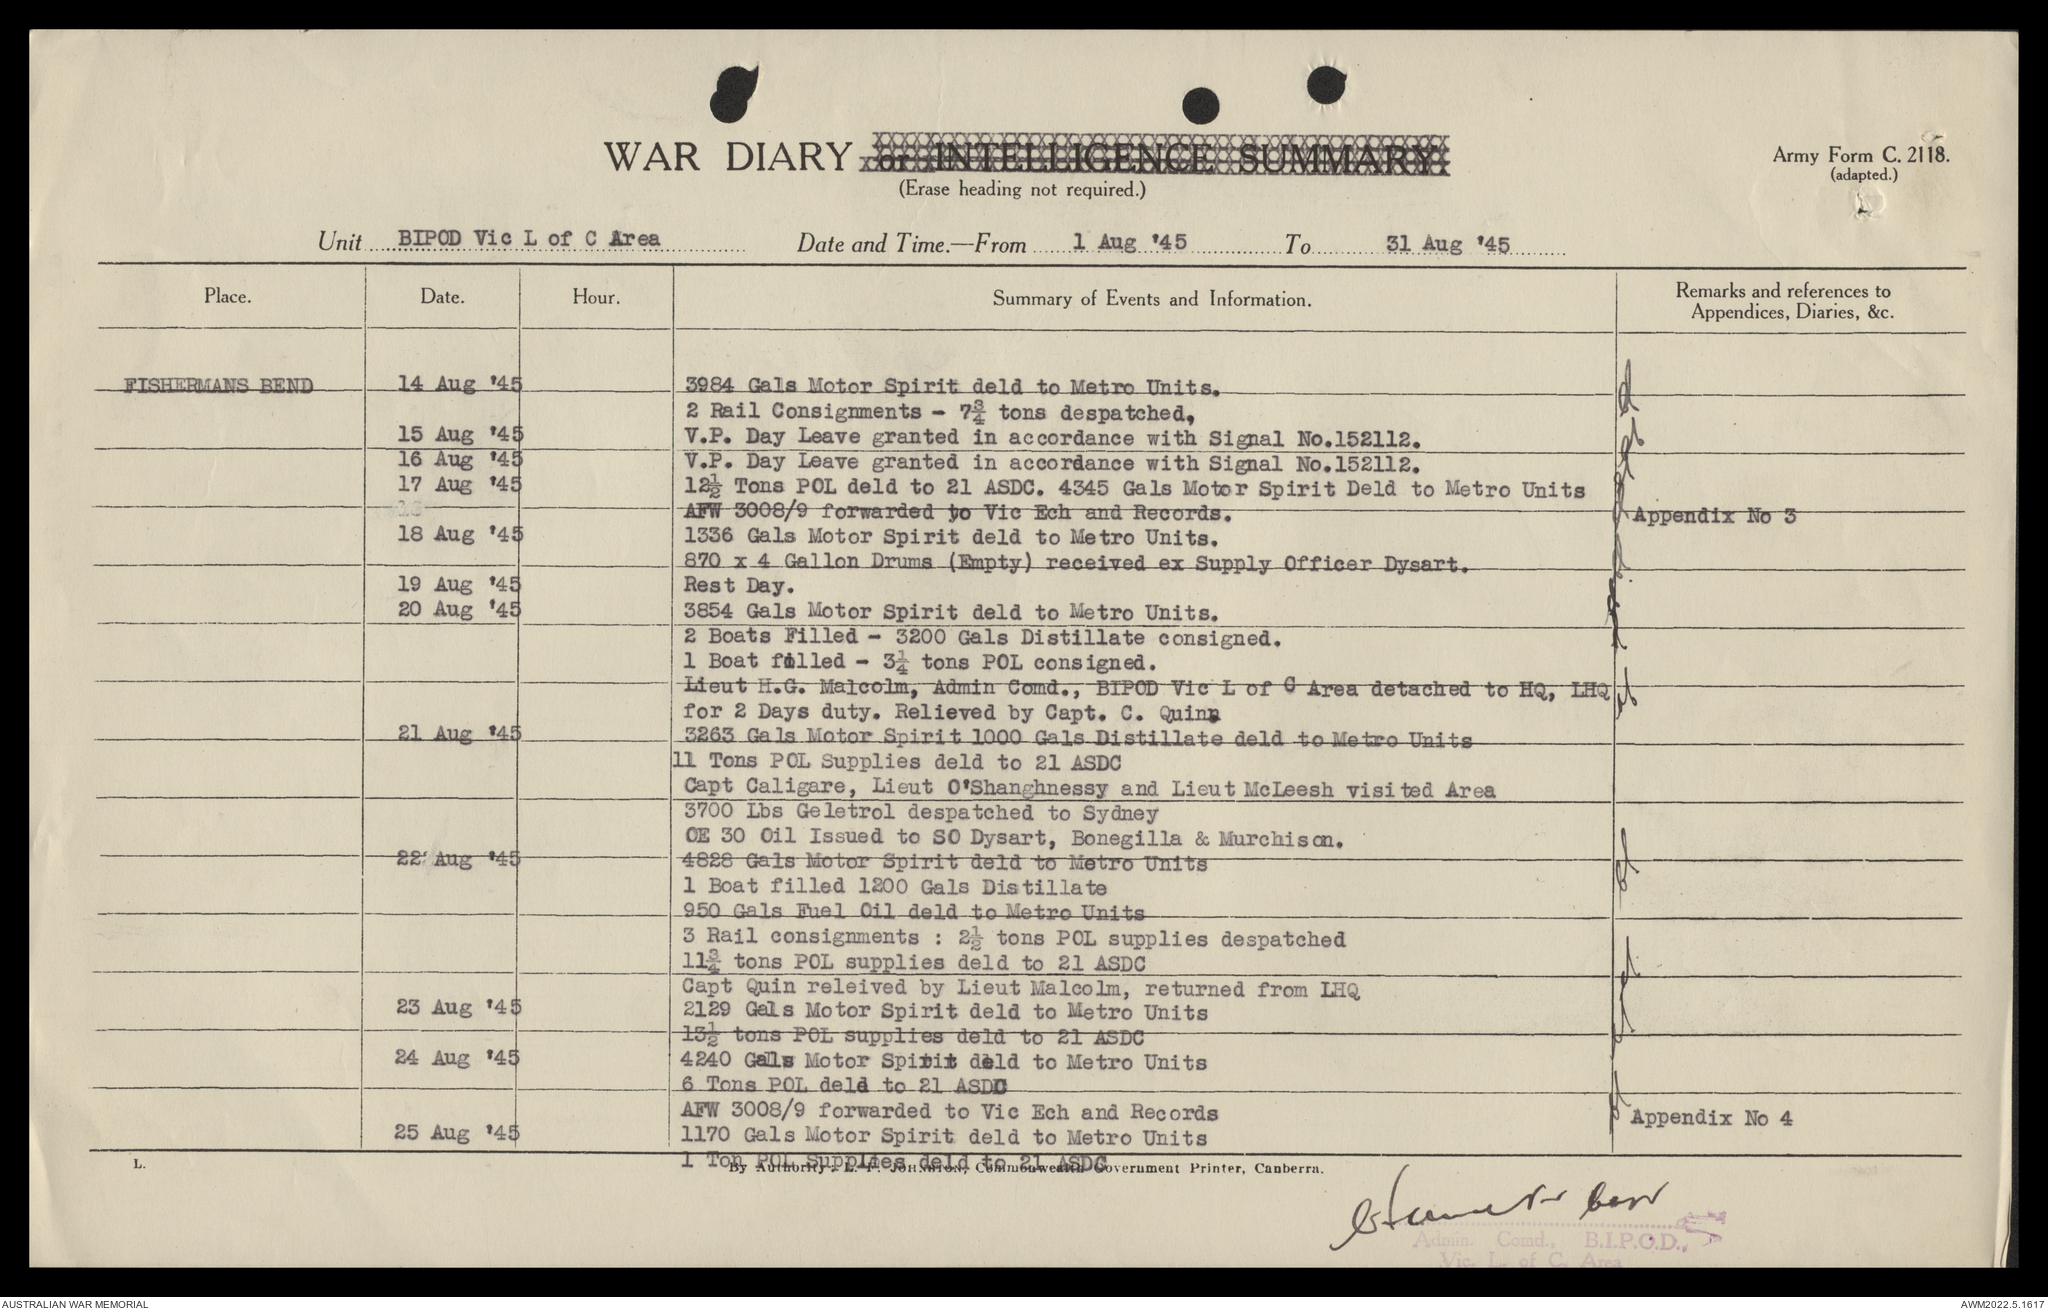 WAR DIARY or INTELLIGENCE SUMMARY.
(Erase heading not required.)
Army Form C. 2118.
(adapted.)
Unit BIPOD Vic L of C Area Date and Time.—From 1 Aug '45 To 31 Aug '45
Place. Date. Hour. Summary of Events and Information. Remarks and references to
Appendices, Diaries, &c.
FISHERMANS BEND 14 Aug '45 3984 Gals Motor Spirit deld to Metro Units.
2 Rail Consignments - 7¾ tons despatched,
15 Aug '45 V.P. Day Leave granted in accordance with Signal No.152112.
16 Aug '45 V.P. Day Leave granted in accordance with Signal No.152112.
17 Aug '45 12½ Tons POL deld to 21 ASDC. 4345 Gals Motor Spirit Deld to Metro Units
AFW 3008/9 forwarded to Vic Ech and Records. Appendix No 3
18 Aug '45 1336 Gals Motor Spirit deld to Metro Units.
870 x 4 Gallon Drums (Empty) received ex Supply Officer Dysart.
19 Aug '45 Rest Day.
20 Aug '45 3854 Gals Motor Spirit deld to Metro Units.
2 Boats Filled - 3200 Gals Distillate consigned.
1 Boat filled - 3¼ tons POL consigned.
Lieut H.G. Malcolm, Admin Comd., BIPOD Vic L of C Area detached to HQ, LHQ
for 2 Days duty. Relieved by Capt. C. Quinn
21 Aug '45 3263 Gals Motor Spirit 1000 Gals Distillate deld to Metro Units
11 Tons POL Supplies deld to 21 ASDC
Capt Caligare, Lieut O'Shanghnessy and Lieut McLeesh visited Area
3700 Lbs Geletrol despatched to Sydney
OE 30 Oil Issued to SO Dysart, Bonegilla & Murchison.
22 Aug '45 4828 Gals Motor Spirit deld to Metro Units
1 Boat filled 1200 Gals Distillate
950 Gals Fuel Oil deld to Metro Units
3 Rail consignments : 2½ tons POL supplies despatched
11¾ tons POL supplies deld to 21 ASDC
Capt Quin releived by Lieut Malcolm, returned from LHQ
23 Aug '45 2129 Gals Motor Spirit deld to Metro Units
13½ tons POL supplies deld to 21 ASDC
24 Aug '45 4240 Gals Motor Spirit deld to Metro Units
6 Tons POL deld to 21 ASDC
AFW 3008/9 forwarded to Vic Ech and Records Appendix No 4
25 Aug '45 1170 Gals Motor Spirit deld to Metro Units
1 Ton POL Supplies deld to 21 ASDC
L. By Authority: L. F. JOHNSTON, Commonwealth Government Printer, Canberra.
Admin. Comd., B.I.P.O.D.,
Vic. L. of C. Area
AUSTRALIAN WAR MEMORIAL
AWM2022.5.1617